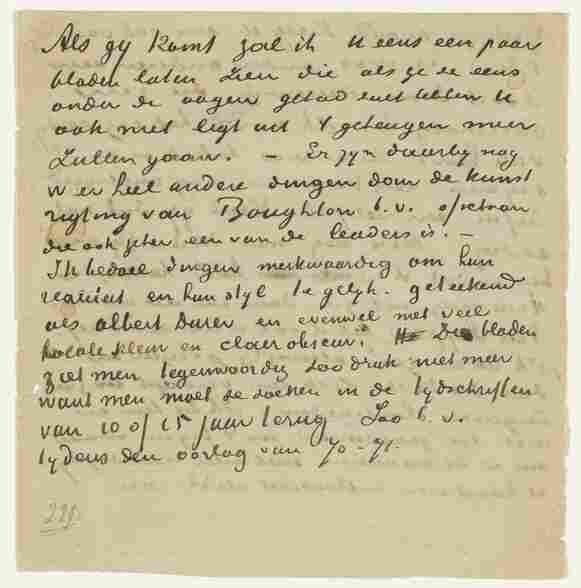 Als gy komt zal ik u eens een paar
bladen laten zien die als ge ze eens
onder de oogen gehad zult hebben U
ook niet ligt uit 't geheugen meer
zullen gaan. — Er zyn daarby nog
w er heel andere dingen dan de kunst
rigting van Boughton b.v. ofschoon
die ook zeker een van de leaders is. —
Ik bedoel dingen merkwaardig om hun
realiteit en hun styl te gelyk. geteekend
als albert Durer en evenwel met veel
lokale kleur en clair obscur. Die bladen
ziet men tegenwoordig zoo druk niet meer
want men moet ze zoeken in de tydschriften
van 10 of 15 jaar terug zoo b.v.
tydens den oorlog van 70-71.
229